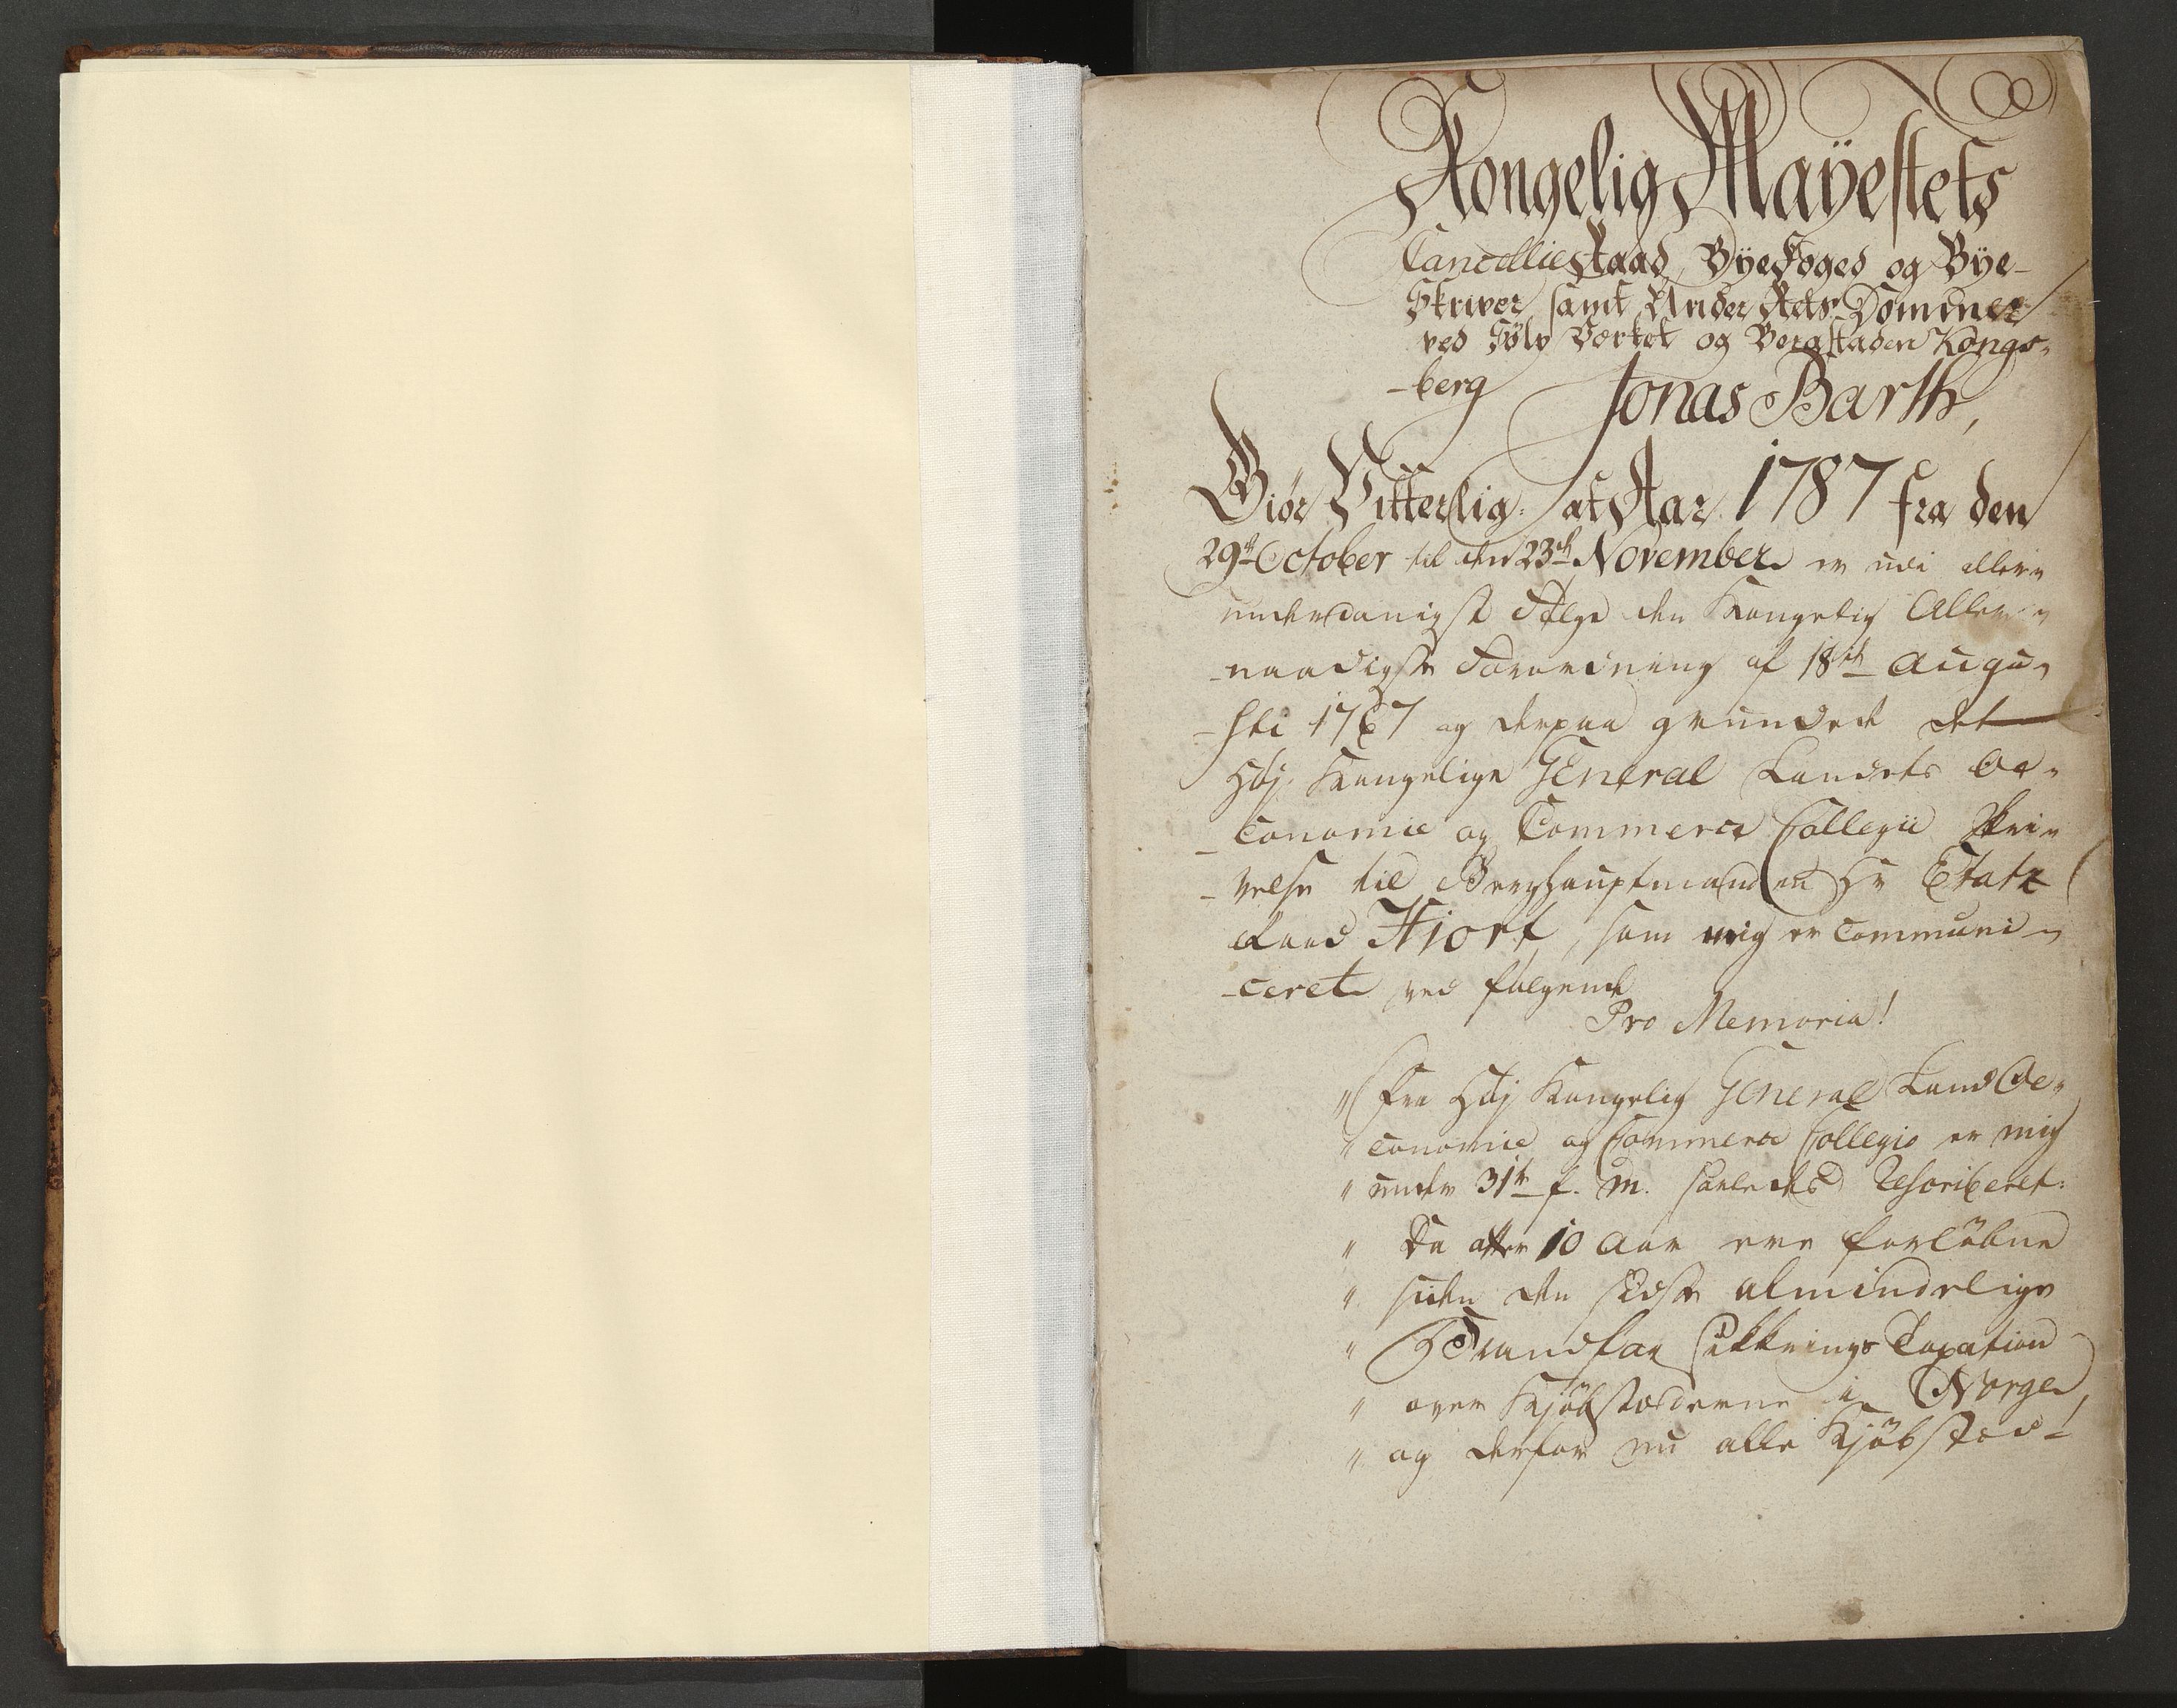 Kongelig Mayestets
Cancellieraad, Byefoged og Bye-
Skriver samt Under Rets Dommer
ved Sølv Værket og Bergstaden Kongs-
-berg Jonas Barth,
Giør Vitterlig: at Aar 1787 fra den
29de October til den 23de November er udi aller-
underdanigst Følge den Kongelig Aller-
-naadigste Forordning af 18de Augu-
-sti 1767 og derpaa grundede det
Høj Kongelige General Landets Oe-
-conomie og Commerce Collegii Skri-
-velse til Berghauptmanden Hr Etatz
Raad Hiort, som mig er Communi-
-ceret ved følgende
Pro Memoria!
" Fra Høj Kongelig General Land Oe-
" conomie og Commerce Collegio er mig
" under 31te f. M. saaledes Rescriberet:
" Da atter 10 Aar ere forløbne
" siden den sidste almindelige
" Brandforsikkrings Taxation
" over Kjøbstæderne i Norge,
" og derfor nu alle Kjøbstæd-